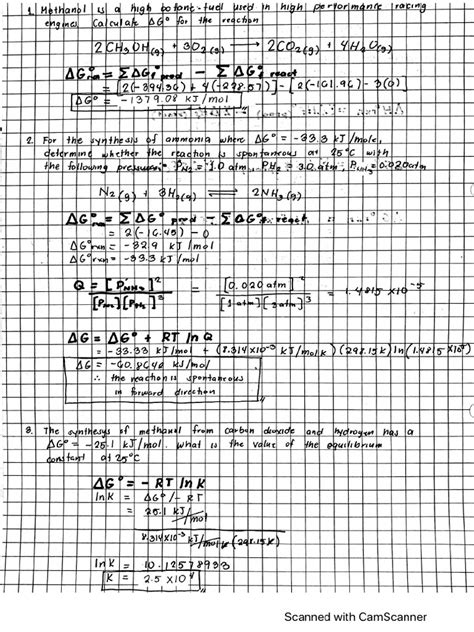 1. Methanol is a high octane-fuel used in high performance racing
engines. Calculate ΔG° for the reaction
2 CH3OH(g) + 3O2(g) → 2CO2(g) + 4H2O(g)
ΔG°rxn = ΣΔG°f prod - ΣΔG°f react
= [2(-394.36) + 4(-228.57)] - [2(-161.96) - 3(0)]
ΔG° = -1379.08 kJ/mol
2. For the synthesis of ammonia where ΔG° = -33.3 kJ/mole,
determine whether the reaction is spontaneous at 25°C with
the following pressures: PN2 = 1.0 atm, PH2 = 3.0 atm, PNH3 = 0.020atm
N2(g) + 3H2(g) ⇌ 2NH3(g)
ΔG°rxn = ΣΔG° prod - ΣΔG°f react
= 2(-16.45) - 0
ΔG°rxn = -32.9 kJ/mol
ΔG°rxn = -33.3 kJ/mol
Q = [PNH3]^2 / [PN2][PH2]^3 = [0.020 atm]^2 / [1 atm][3 atm]^3 = 1.4815 x10^-5
ΔG = ΔG° + RT ln Q
= -33.33 kJ/mol + (8.314x10^-3 kJ/mol K)(298.15K) ln(1.4815 x10^-5)
ΔG = -60.8640 kJ/mol
∴ the reaction is spontaneous
in forward direction
3. The synthesys of methanol from carbon dioxide and hydrogen has a
ΔG° = -25.1 kJ/mol. What is the value of the equilibrium
constant at 25°C
ΔG° = - RT ln K
ln K = ΔG°/-RT
= 25.1 kJ/mol
8.314x10^-3 kJ/mol K (298.15K)
ln K = 10.12578933
K = 2.5 x10^4
Scanned with CamScanner